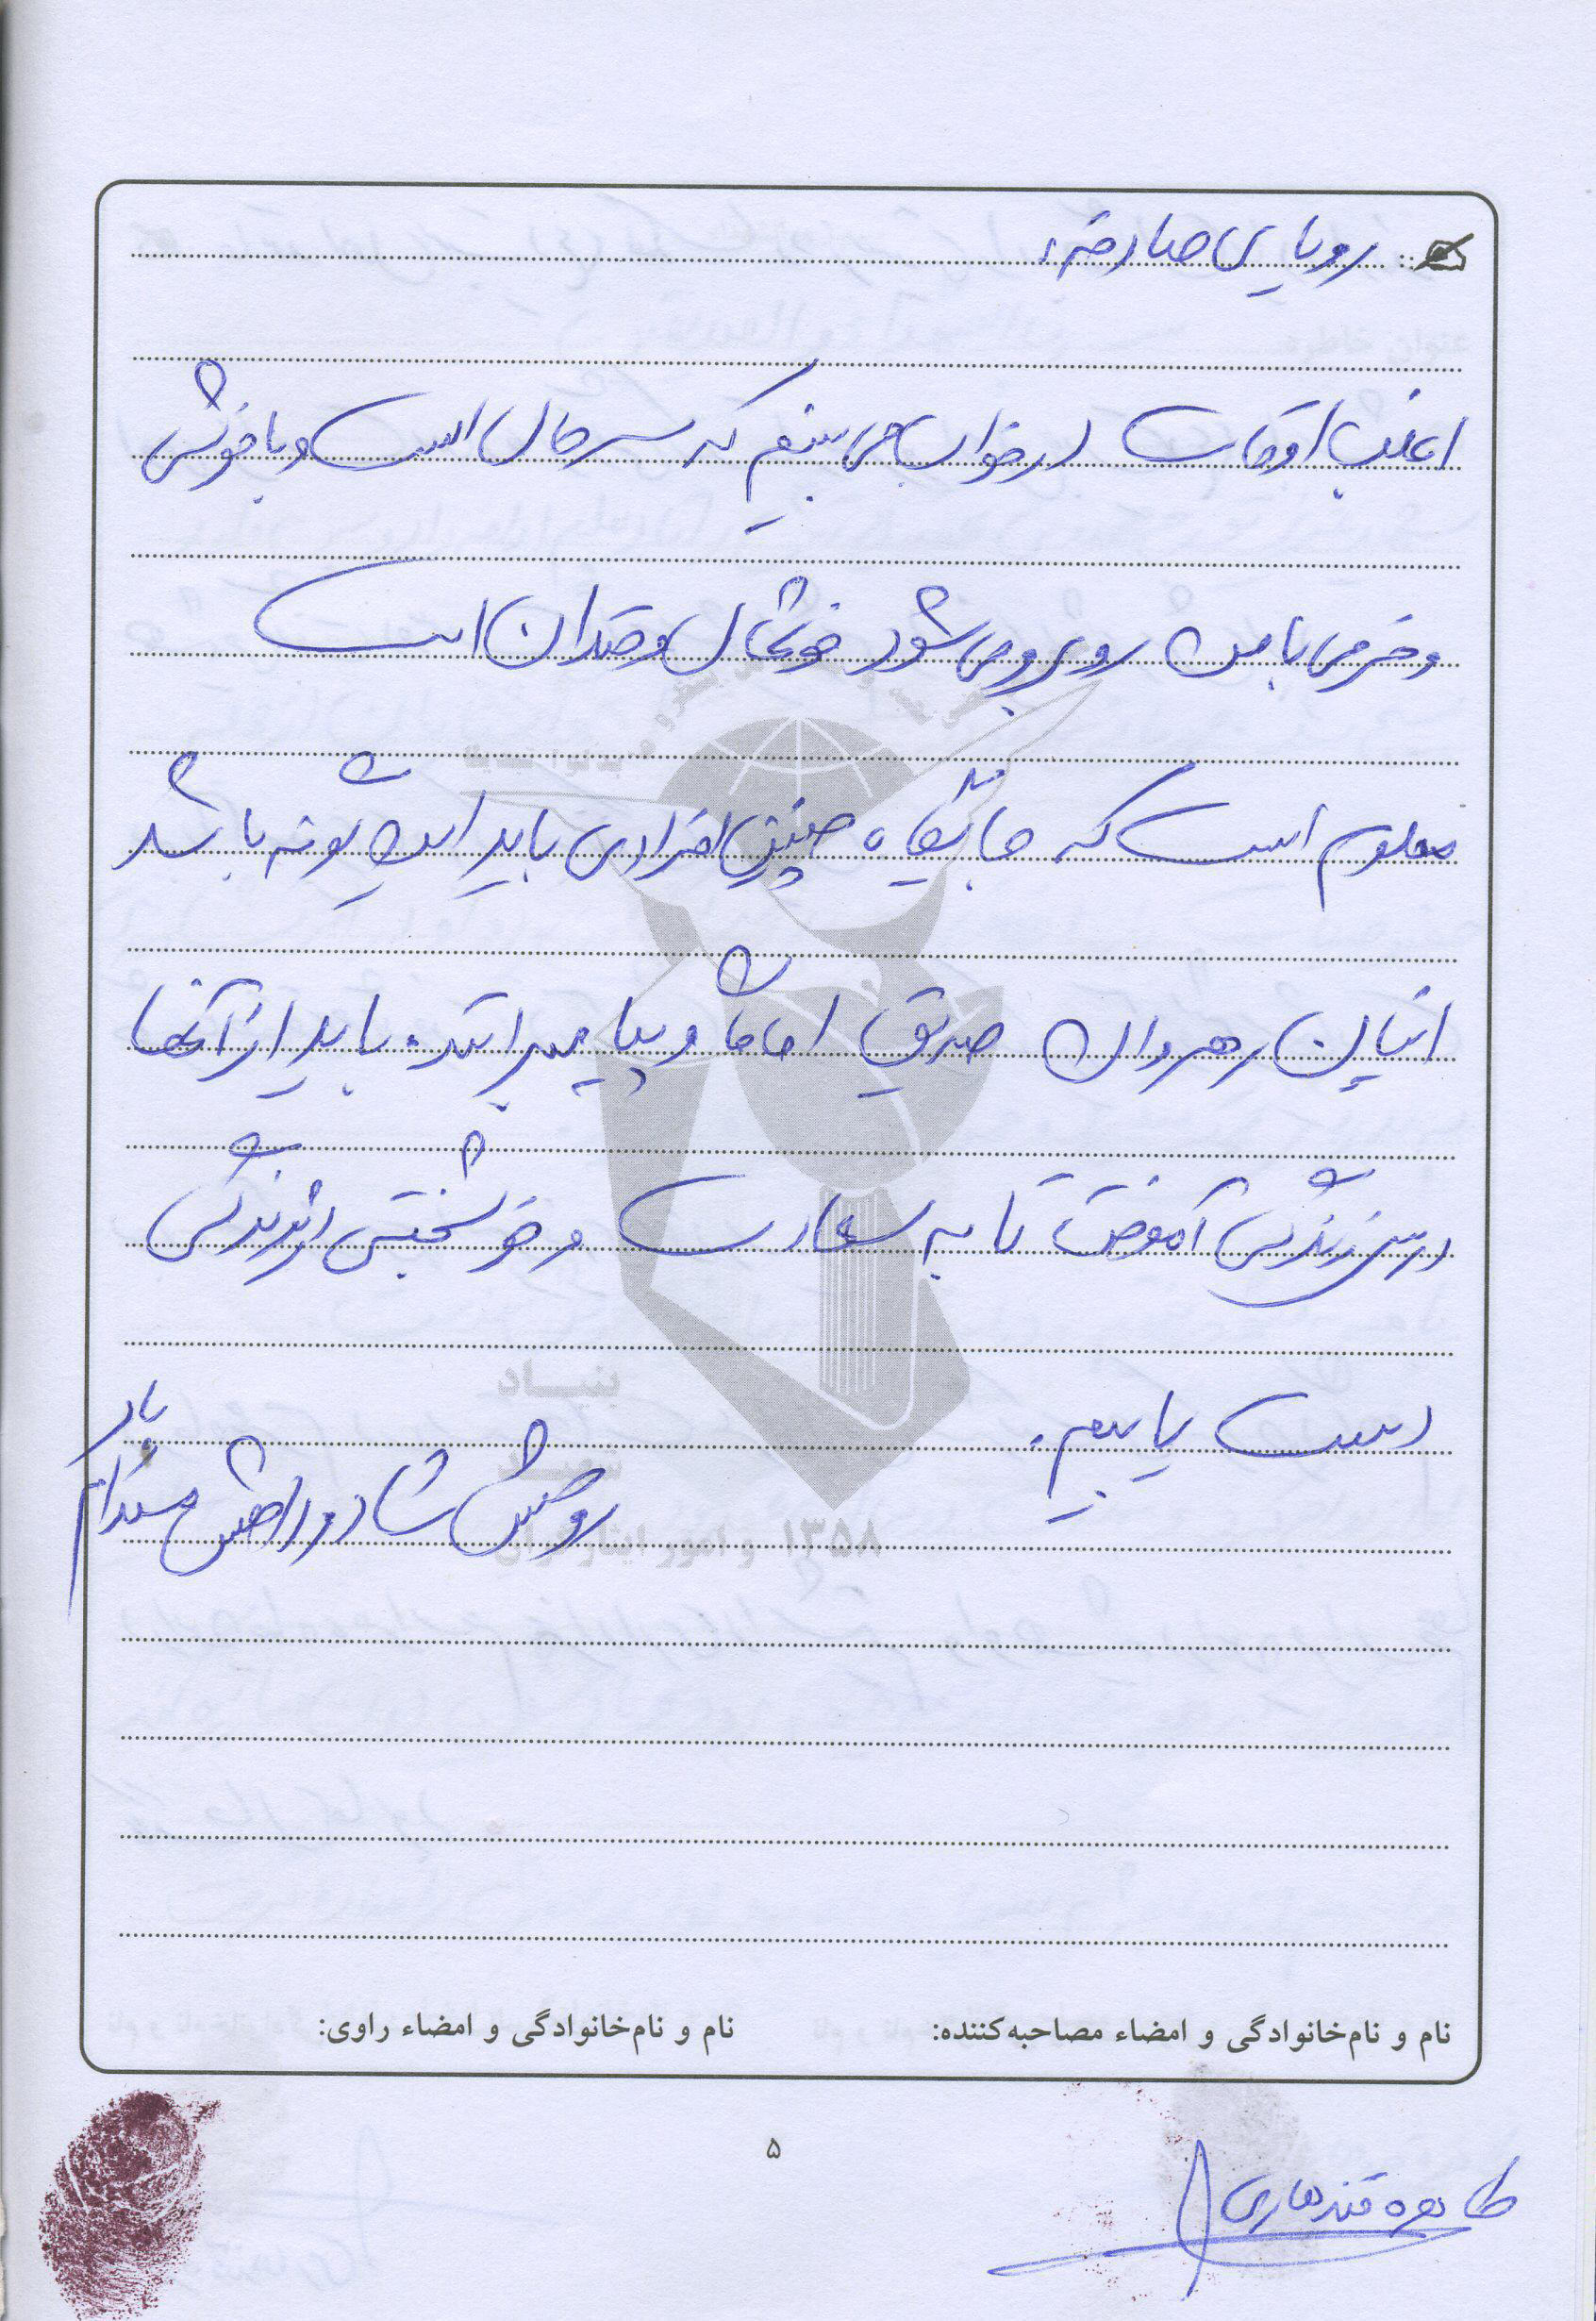 رویای صادقه:
اغلب اوقات در خواب می بینم که سرحال است و با خوشی
و خرمی با من روبرو می شود خوشحال و خندان است
معلوم است که جایگاه چنین افرادی باید این گونه باشد
اینان رهروان صدیق امامان و پیامبرانند. باید از آنها
درس زندگی آموخت تا به سعادت و خوشبختی در زندگی
دست یابیم.
روحش شاد و راهش مستدام باد
بنیاد
شهید
و امور ایثارگران ۱۳۵۸
نام و نام‌خانوادگی و امضاء مصاحبه‌کننده: نام و نام‌خانوادگی و امضاء راوی:
۵
طاهره قندهاری